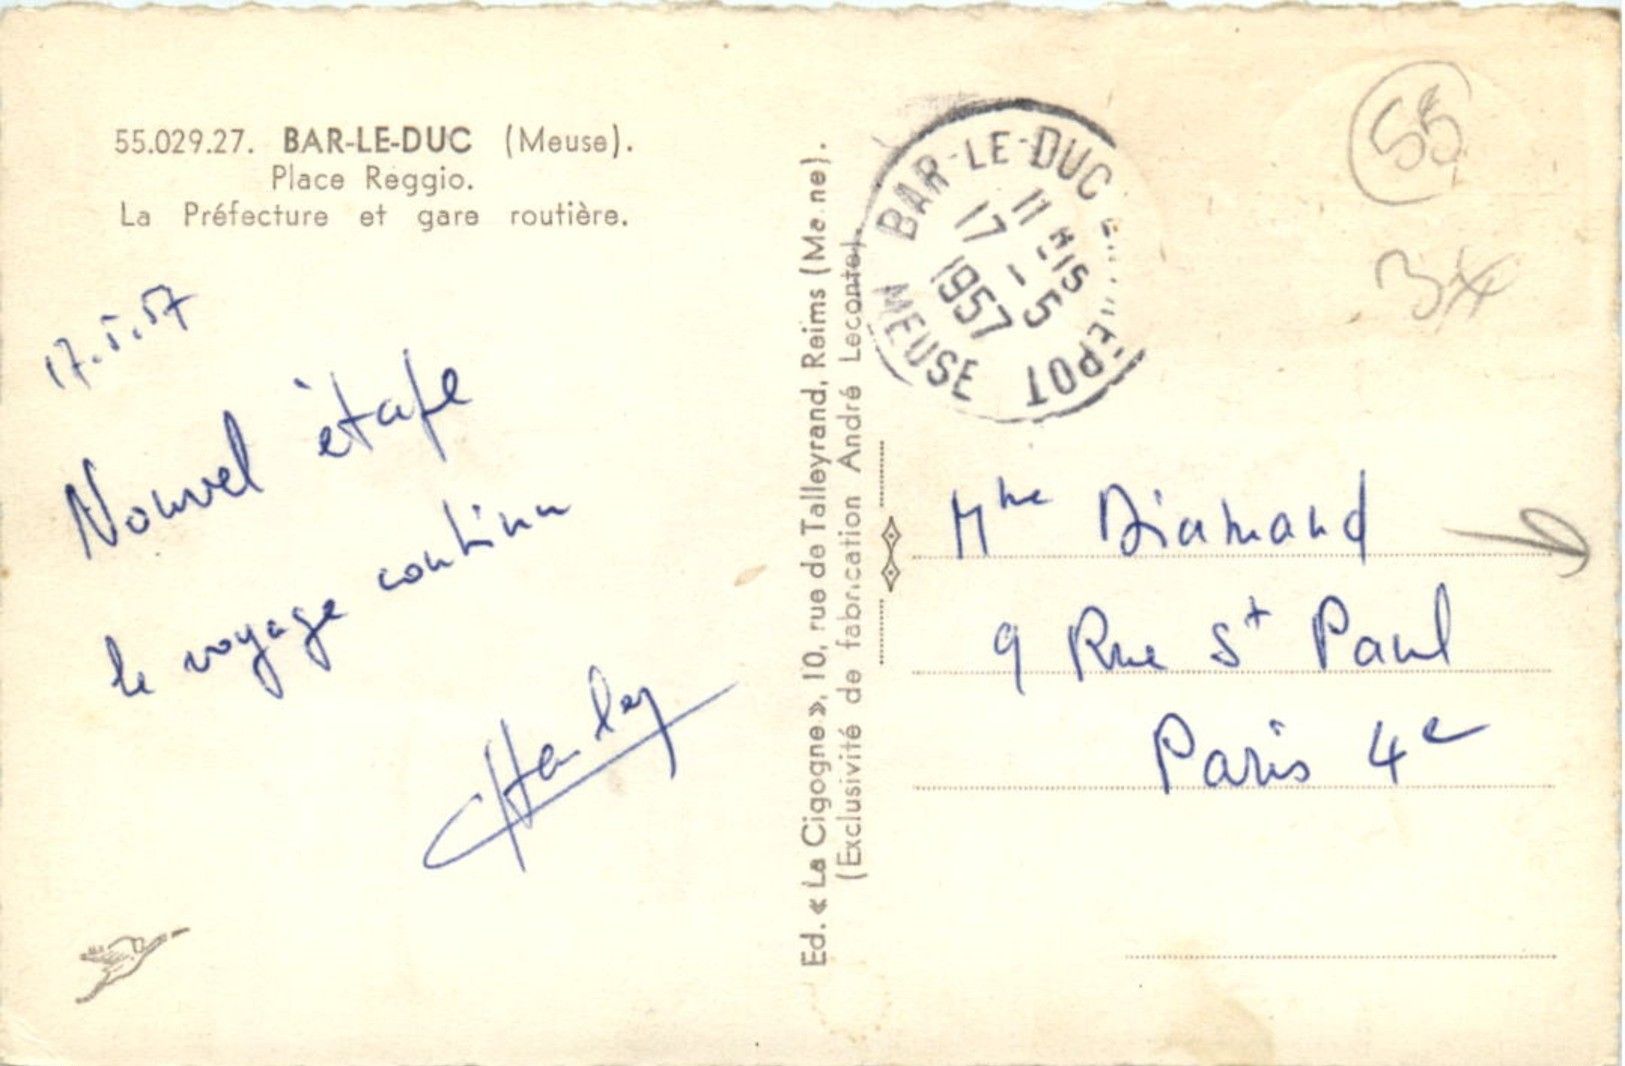 55.029.27. BAR-LE-DUC (Meuse).
Place Reggio.
La Préfecture et gare routière.
17.5.57
Nouvel étape
le voyage continu
Ed. « La Cigogne », 10, rue de Talleyrand, Reims (Ma ne).
(Exclusivité de fabrication André Leconte).
BAR-LE-DUC
11 H15
17 - 5
1957
MEUSE
55
3
Mme Diamand
9 Rue St Paul
Paris 4e